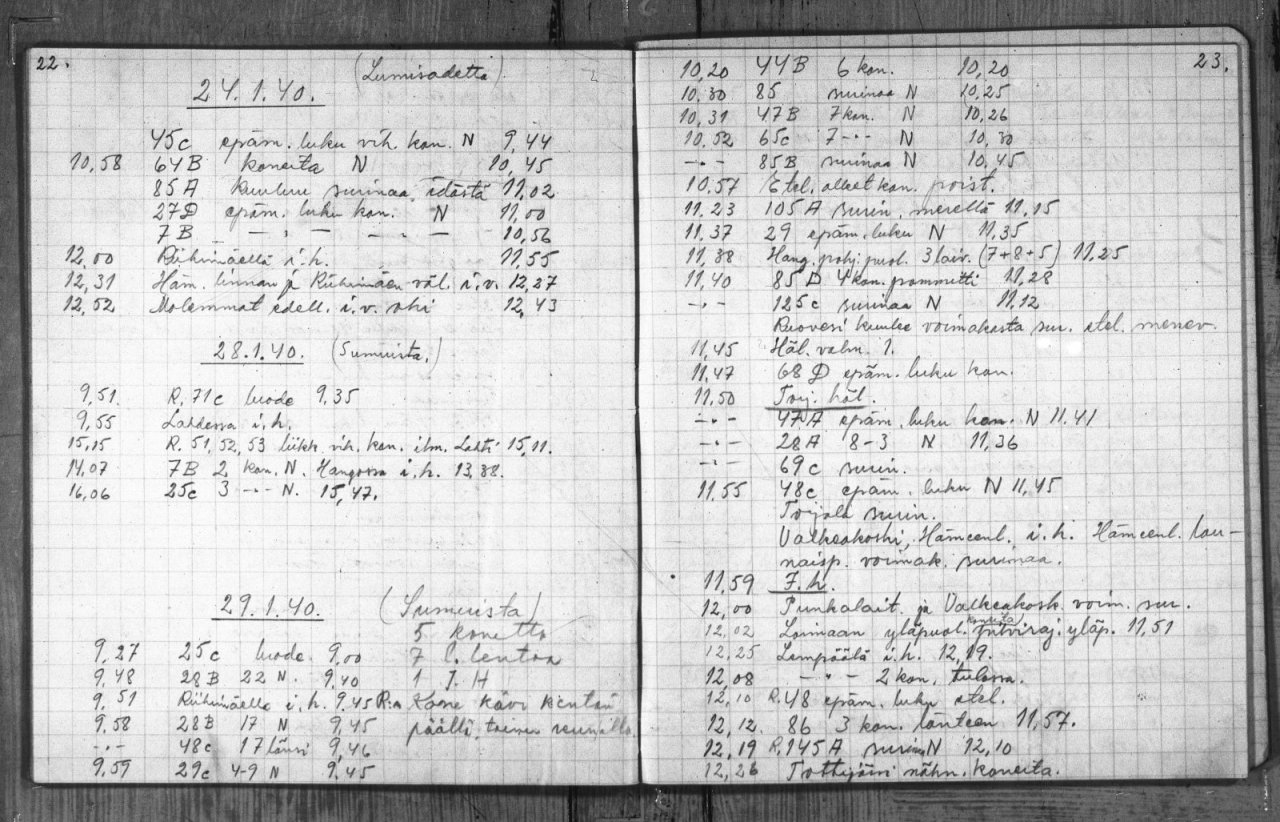 22.
(Lumisadetta)
24.1.40.
45c epäm. luku vih. kon. N 9,44
10,58 64B koneita N 10,45
85A kuuluu surinaa, idästä 11,02
27D epäm. luku kon. N 11,00
7B — , — „ — „ — 10,56
12,00 Riihimäellä i.h. 11,55
12,31 Häm. linnan ja Riihimäen väl. i.v. 12,27
12,52 Molemmat edell. i.v. ohi 12,43
28.1.40. (Sumuista.)
9,51. R. 71c luode 9,35
9,55 Lahdessa i.h.
15,15 R. 51, 52, 53 liikk. vih. kon. ilm. Lahti 15,11.
14,07 7B 2 kon. N. Hangossa i.h. 13,38.
16,06 25c 3 -"- N. 15,47.
29.1.40. (Sumuista)
5 konetta
9,27 25c luode 9,00 7 l. lentoa
9,48 28B 22 N. 9,40 1 J. H
9,51 Riihimäellä i.h. 9,45 R:n Kone kävi kentän
9,58 28B 17 N 9,45 päällä,
-"- 48c 17 länsi 9,46
9,59 29c 4-9 N 9,45
23.
10,20 44B 6 kon. 10,20
10,30 85 surinaa N 10,25
10,31 47B 7 kon. N 10,26
10,52 65c 7 -"- N 10,30
-"- 85B surinaa N 10,45
10,57 Etel. olleet kon. poist.
11,23 105A surin. merellä 11,15
11,37 29 epäm. luku N 11,35
11,38 Hang. pohj. puol. 3 laiv. (7+8+5) 11,25
11,40 85D 4 kon. pommitti 11,28
-"- 125c surinaa N 11,12
Ruovesi kuulee voimakasta sur. etel. menev.
11,45 Häl. valm. 1.
11,47 68D epäm. luku kon.
11,50 Toij. häl.
-"- 47A epäm. luku kon. N 11.41
-"- 28A 8-3 N 11,36
-"- 69c surin.
11,55 48c epäm. luku N 11,45
Toijala surin.
Valkeakoski, Hämeenl. i.h. Hämeenl. lou-
naisp. voimak. surinaa.
11,59 7. h.
12,00 Punkalait. ja Valkeakosk. voim. sur.
koneita
12,02 Loimaan yläpuol. yläp. 11,51
12,25 Lempäälä i.h. 12,19.
12,08 -"- 2 kon. tulossa.
12,10 R. 48 epäm. luku etel.
12,12. 86 3 kon. länteen 11,57.
12,19 R. 145A surin. N 12,10
12,26 Tottijärvi nähn. koneita.